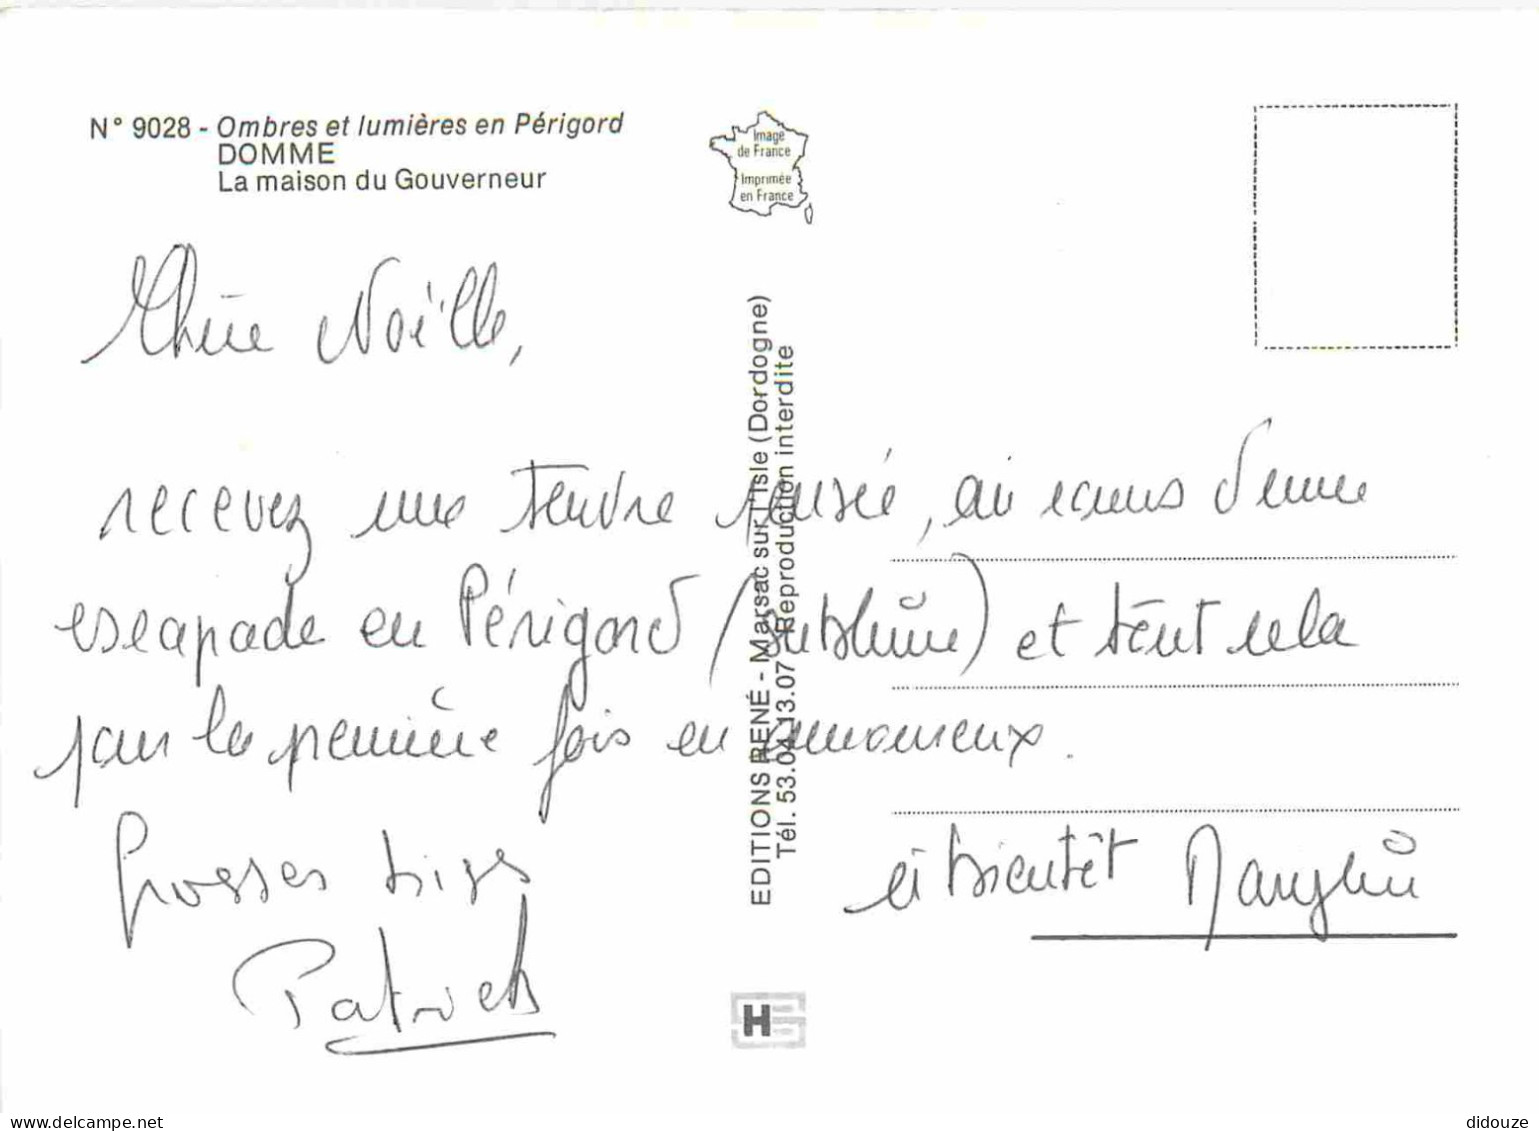 N° 9028 - Ombres et lumières en Périgord
DOMME
La maison du Gouverneur
Image
de France
Imprimée
en France
Chère Noëlle,
recevez une tendre pensée, au cours d'une
escapade en Périgord (sublime) et tout cela
pour la première fois en amoureux.
Grosses bises
Patrick
à bientôt
EDITIONS RENÉ - Marsac sur l'Isle (Dordogne)
Tél. 53.04.13.07 - Reproduction interdite
H
delcampe.net
didouze